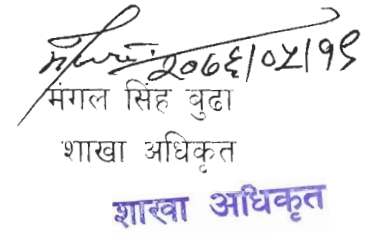 २०७६/०५/१९
मंगल सिंह बुढा
शाखा अधिकृत
शाखा अधिकृत